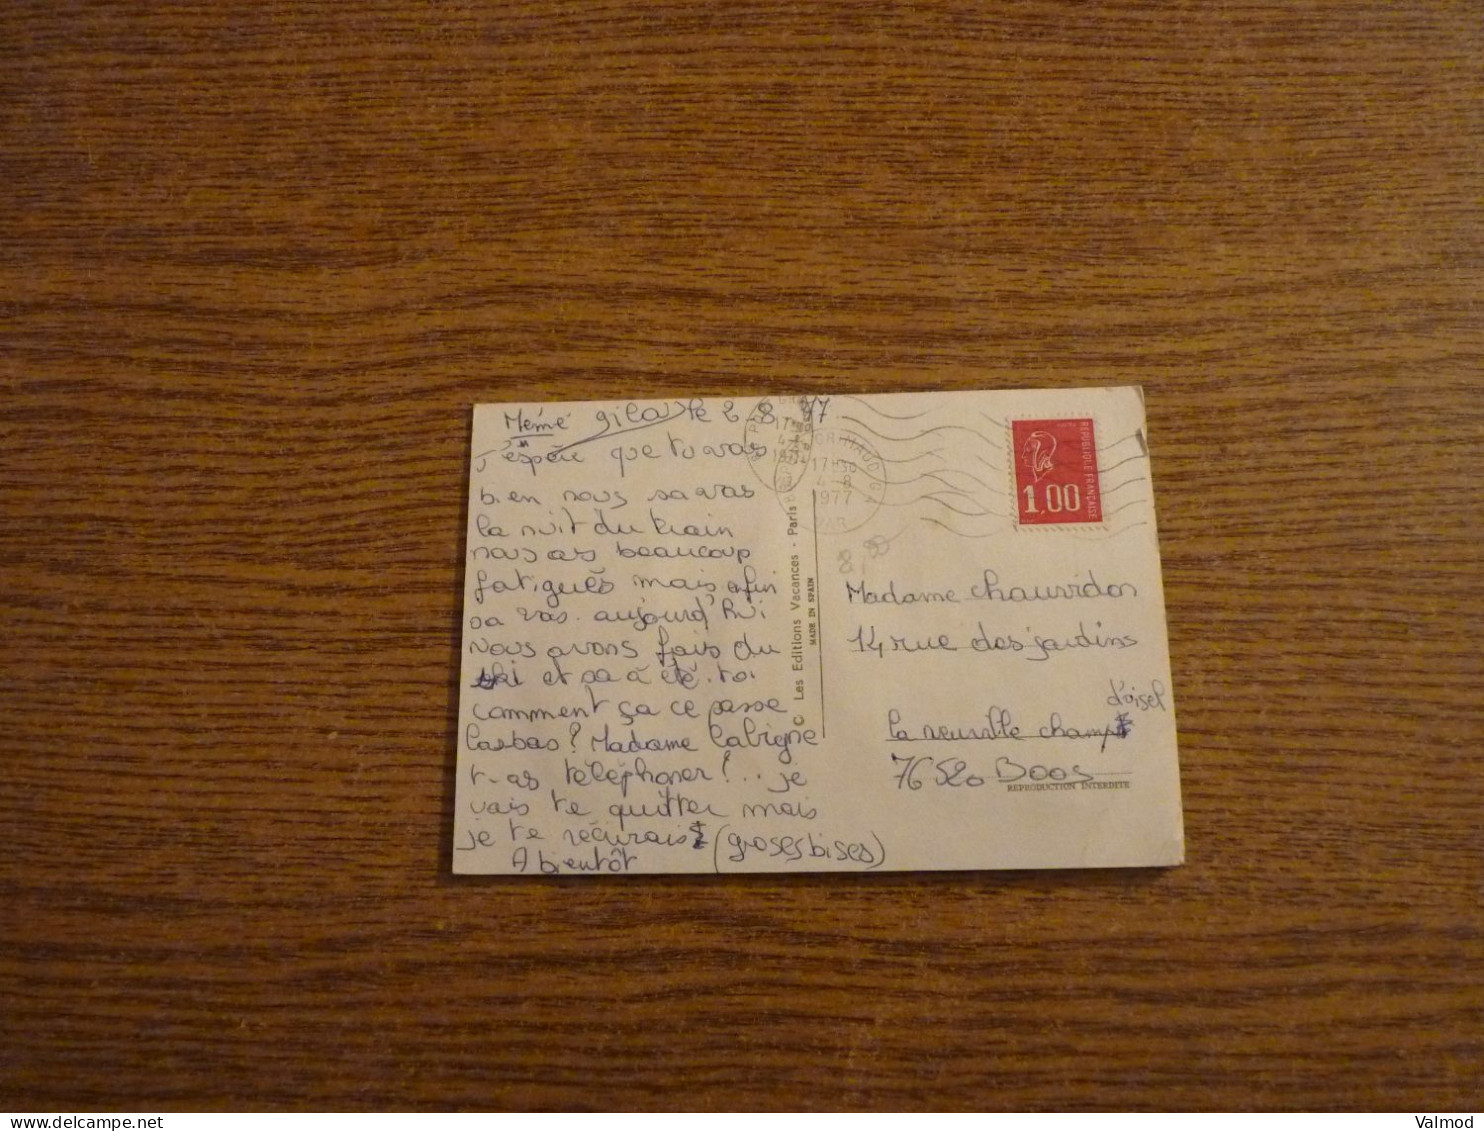 Mémé gilou le 2 8 77
j'espère que tu vas
bien nous sa vas
la nuit du train
nous as beaucoup
fatiguès mais afin
sa vas. aujourd'hui
nous avons fais du
ski et sa à été. toi
comment ça ce passe
lasbas? Madame Labigne
t-as téléphoner!... je
vais te quitter mais
je te récurais
A bientôt (groses bises)
© Les Editions Vacances - Paris
MADE IN SPAIN
GRIMAUD
17H30
4-8
1977
VAR
REPUBLIQUE FRANÇAISE
1,00
Madame Chauvidon
14 rue des jardins
d'oisel
la neuville champ
76520 Boos
REPRODUCTION INTERDITE
Valmod